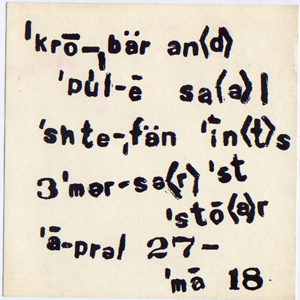 ˈkrō-ˌbär an⟨d⟩
ˈpu̇l-ē sa⟨ə⟩l
ˈshte-ˌfän ˈīn⟨t⟩s
3 ˈmər-sə⟨r⟩ ˈst
ˈstō⟨ə⟩r
ˈā-prəl 27-
ˈmā 18